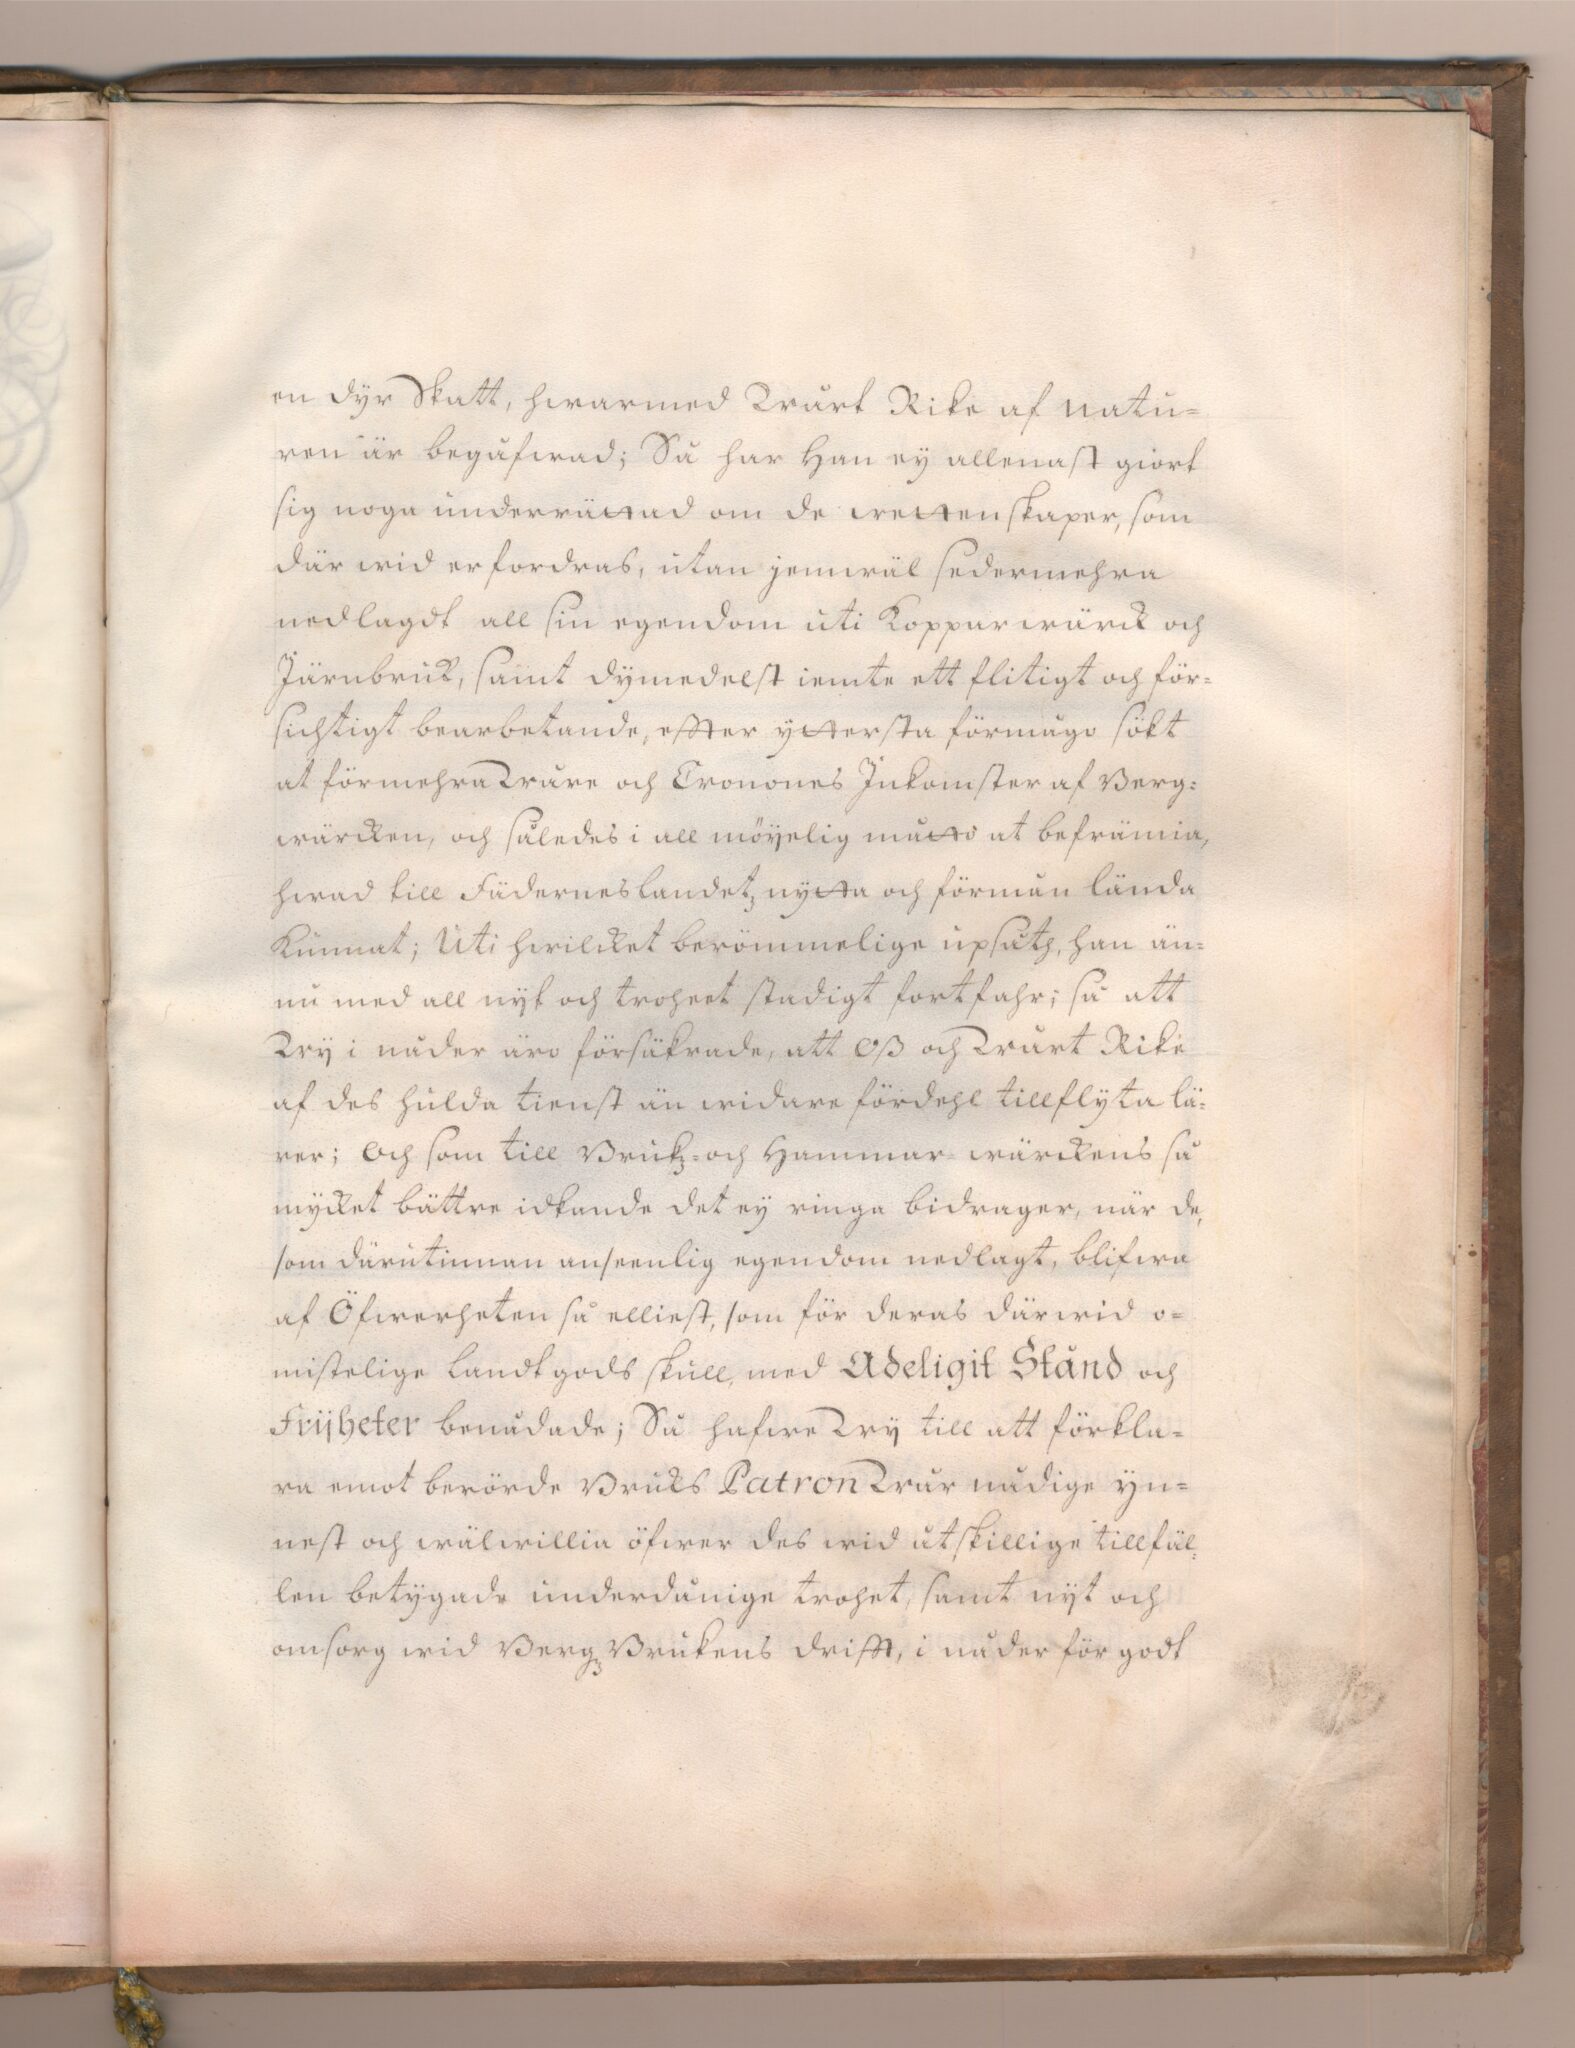 en dyr Skatt, hwarmed Wårt Rike af natu=
ren är begåfwad; Så har Han ey allenast giort
sig noga underrättad om de wettenskaper, som
där wid erfordras, utan jemwäl sedermehra
nedlagdt all sin egendom uti Kopparwärck och
Järnbruk, samt dymedelst iemte ett flitigt och för=
sichtigt bearbetande, effter yttersta förmågo sökt
at förmehra Wåre och Cronones Inkomster af Berg=
wärcken, och således i all möyelig måtto at befrämia,
hwad till Fäderneslandetz nytta och förmån lända
kunnat; Uti hwilcket berömmelige upsåtz, han än=
nu med all nyt och troheet stadigt fortfahr; så att
Wy i nåder äro försäkrade, att Oß och Wårt Rike
af des hulda tienst än widare fördehl tillflyta lä=
rer; Och som till Brukz= och Hammar=wärckens så
mycket bättre idkande det ey ringa bidrager, när de,
som därutinnan anseenlig egendom nedlagt, blifwa
af Öfwerheten så elliest, som för deras därwid o=
mistelige landtgods skull, med Adeligit Stånd och
Frijheter benådade; Så hafwe Wy till att förkla=
ra emot berörde Bruks Patron Wår nådige yn=
nest och wälwillia öfwer des wid åtskillige tillfäl=
len betygade underdånige trohet, samt nyt och
omsorg wid Bergz Brukens drifft, i nåder för godt